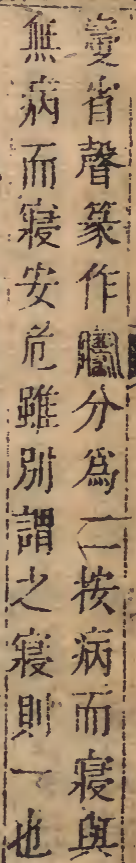 省聲篆作分爲二按病而寢與
無病而寢安危雖別謂之寢則一也